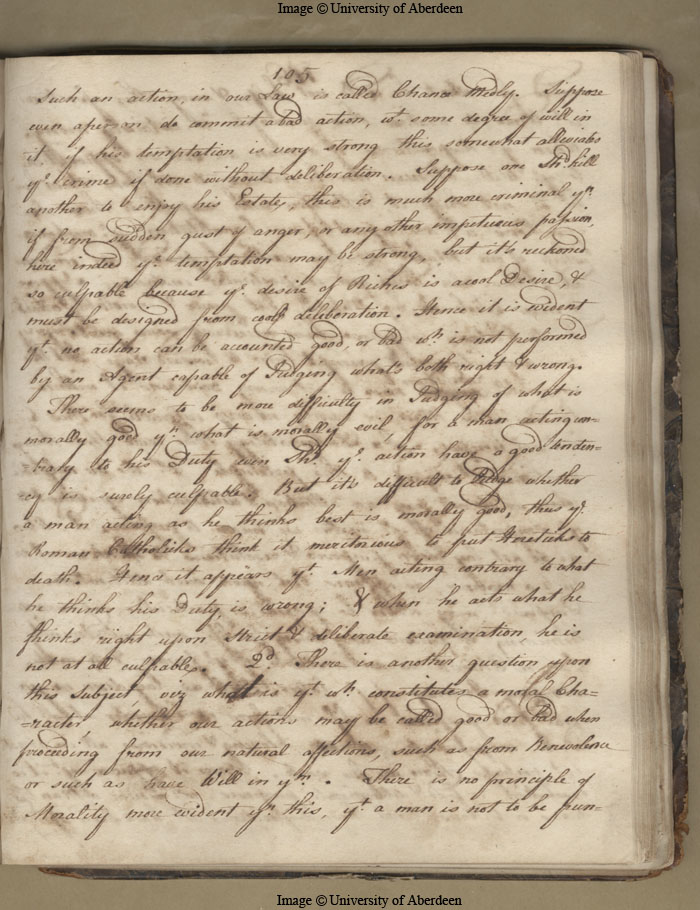 Image © University of Aberdeen
105
Such an action, in our Law is called Chance Medly. Suppose
even a person do commit a bad action, wt. some degree of will in
it, if his temptation is very strong this somewhat alleviates
ye. crime if done without deliberation. Suppose one Shd. kill
another to enjoy his Estate, this is much more criminal yn.
if from sudden gust of anger, or any other impetuous passion,
here indeed ye. temptation may be strong, but it's reckoned
so culpable because ye. desire of Riches is a cool Desire, &
must be designed from cool deliberation. Hence it is evident
yt. no action can be accounted good, or bad wh. is not performed
by an Agent capable of Judging what's both right & wrong.
There seems to be more difficulty in Judging of what is
morally good yn. what is morally evil, for a man acting con=
trary to his Duty even Tho. ye. action have a good tenden=
cy is surely culpable. But it's difficult to Judge whether
a man acting as he thinks best is morally good, thus ye.
Roman Catholicks think it meritorious to put Hereticks to
death. Hence it appears yt. Men acting contrary to what
he thinks his Duty, is wrong; & when he acts what he
thinks right upon Strict & deliberate examination, he is
not at all culpable. 2d. There is another question upon
this Subject, viz what is yt. wh. constitutes a moral Cha=
=racter, whether our actions may be called good or bad when
proceeding from our natural affections, such as from Benevolence
or such as have Will in ym. There is no principle of
Morality more evident yn. this, yt. a man is not to be pun=
Image © University of Aberdeen